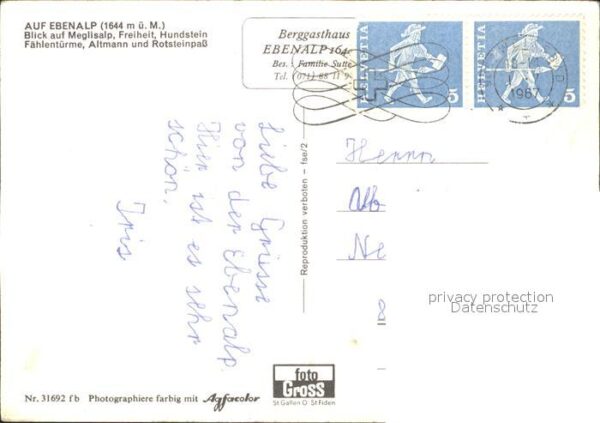 AUF EBENALP (1644 m ü. M.)
Blick auf Meglisalp, Freiheit, Hundstein
Fählentürme, Altmann und Rotsteinpaß
Berggasthaus
EBENALP 164
Bes. Familie Sutte
Tel. (071) 88 11 9
HELVETIA 5
HELVETIA 5
1967
Liebe Grüsse
von der Ebenalp.
Hier ist es sehr
schön,
Iris
Reproduktion verboten – fse/2 –
Herrn
Alb
Ne
8
privacy protection
Datenschutz
foto
Gross
St Gallen O St Fiden
Nr. 31692 fb Photographiere farbig mit Agfacolor